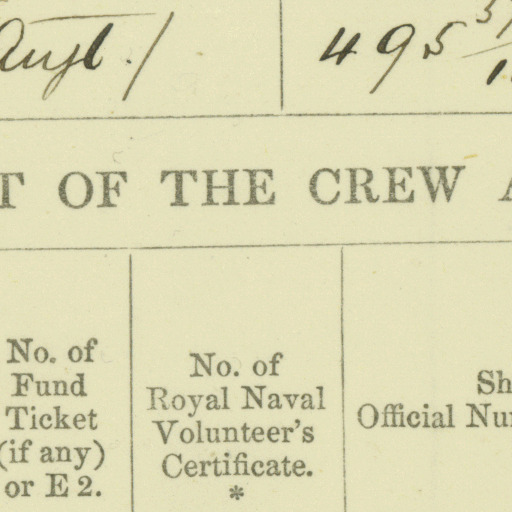 495
T OF THE CREW
No. of
Fund
Ticket
(if any)
or E 2.
No. of
Royal Naval
Volunteer's
Certificate.
*
Sh
Official Nu